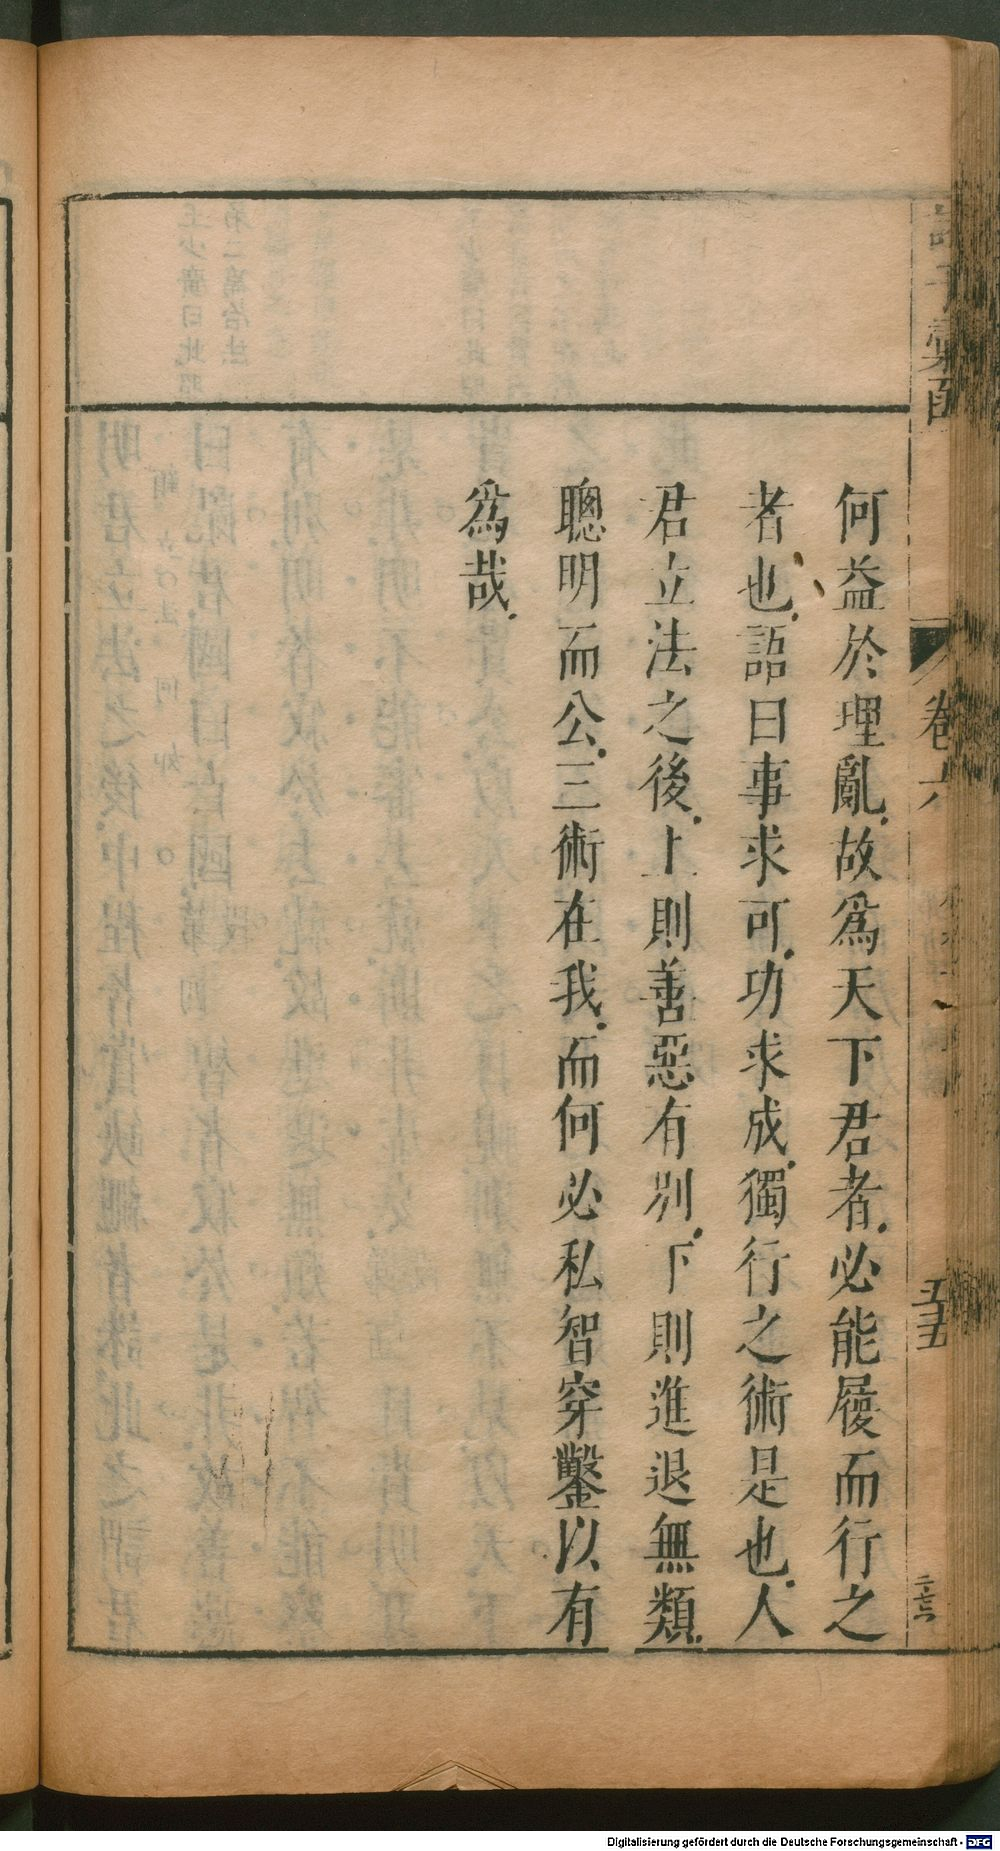 何益於理亂故爲天下君者必能履而行之
者也語曰事求可功求成獨行之術是也人
君立法之後上則善惡有別下則進退無類
聰明而公三術在我而何必私智穿鑿以有
爲哉
卷六
五五
Digitalisierung gefördert durch die Deutsche Forschungsgemeinschaft - DFG